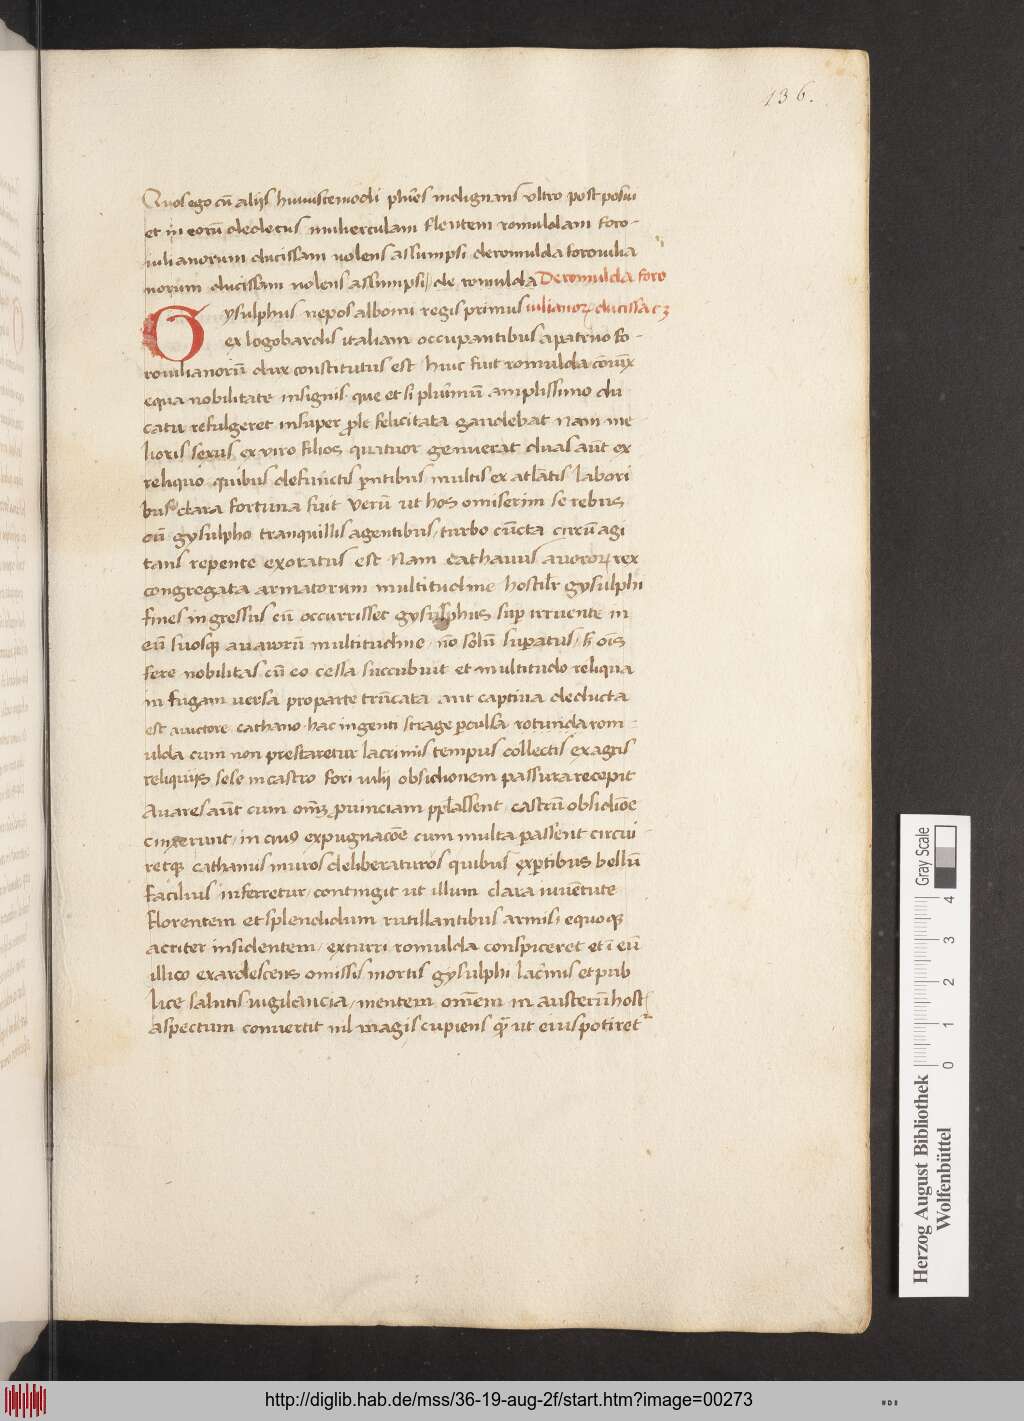 136.
Quos ego cū alijs huiuscemodi phīes indignans vltro post posui
et in eorū dedecus mulierculam flentem romuldam foro-
iulianorum ducissam nolens assumpsi de romulda foroiulia
norum ducissam nolens assumpsi / de romulda De romulda foro
Gysulphus nepos albonii regis primus iulianoꝝ ducissa cꝫ
ex logobardis italiam occupantibus a patruo fo-
roiulianorū dux constitutus est huic fuit romulda cōiūx
equa nobilitate insignis. que et si plurimū amplissimo du
catu refulgeret insuper prole felicitata gaudebat Nam me-
lioris sexus ex viro filios quatuor genuerat duas aūt ex
reliquo quibus defunctis pntibus multis ex atlātis labori
bus clara fortuna fuit Verū ut hos omiserim se rebus
cū gysulpho tranquillis agentibus / turbo cūcta circū agi
tans repente exoratus est Nam cathanus auaroꝝ rex
congregata armatorum multitudine hostilr gysulphi
fines ingressus cū occurrisset gysulphus sup irruente in
eū suosqꝫ auarorū multitudine / nō solū supatus / sꝫ oīs
fere nobilitas cū eo cessa succubuit et multitudo reliqua
in fugam versa pro parte trūcata aut captiua deducta
est auctore cathano. hac ingenti strage pculsa rotunda rom-
ulda cum non prestaretur lacrimis tempus collectis exagtis
reliquijs sese in castro fori iulij obsidionem passura recepit
Auares aūt cum omēꝫ prouinciam pplassent / castrū obsidiōe
cinxerunt / in cuiꝰ expugnacōe cum multa passi ēnt circui-
retqꝫ cathanus muros deliberaturos quibus expertibus bellū
facilius inferretur / contingit ut illum clara iuuētute
florentem et splendidum rutillantibus armis / equoqꝫ
acriter insidentem / ex turri romulda conspiceret et ī eū
illico exardescens omissis mortis gysulphi lacrimis et pub
lice salutis vigilancia / mentem omēm in austerū host
aspectum conuertit nil magis cupiens qͣ ut eius potiret
Herzog August Bibliothek
Wolfenbüttel
0 1 2 3 4
Gray Scale
http://diglib.hab.de/mss/36-19-aug-2f/start.htm?image=00273